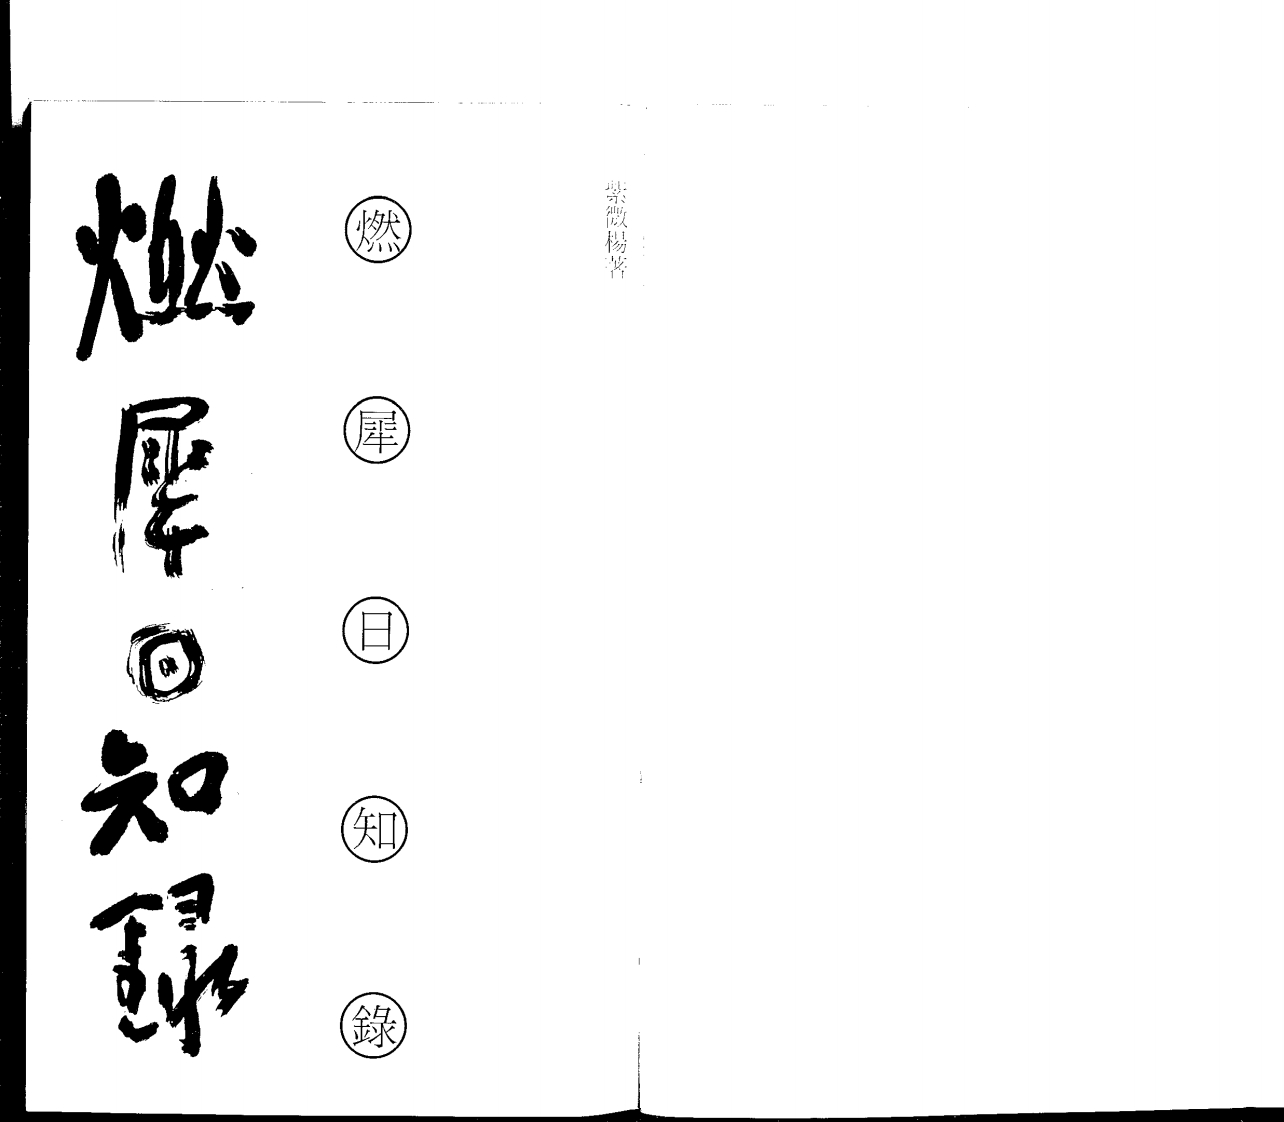 紫微楊著
燃犀日知錄
燃犀日知錄